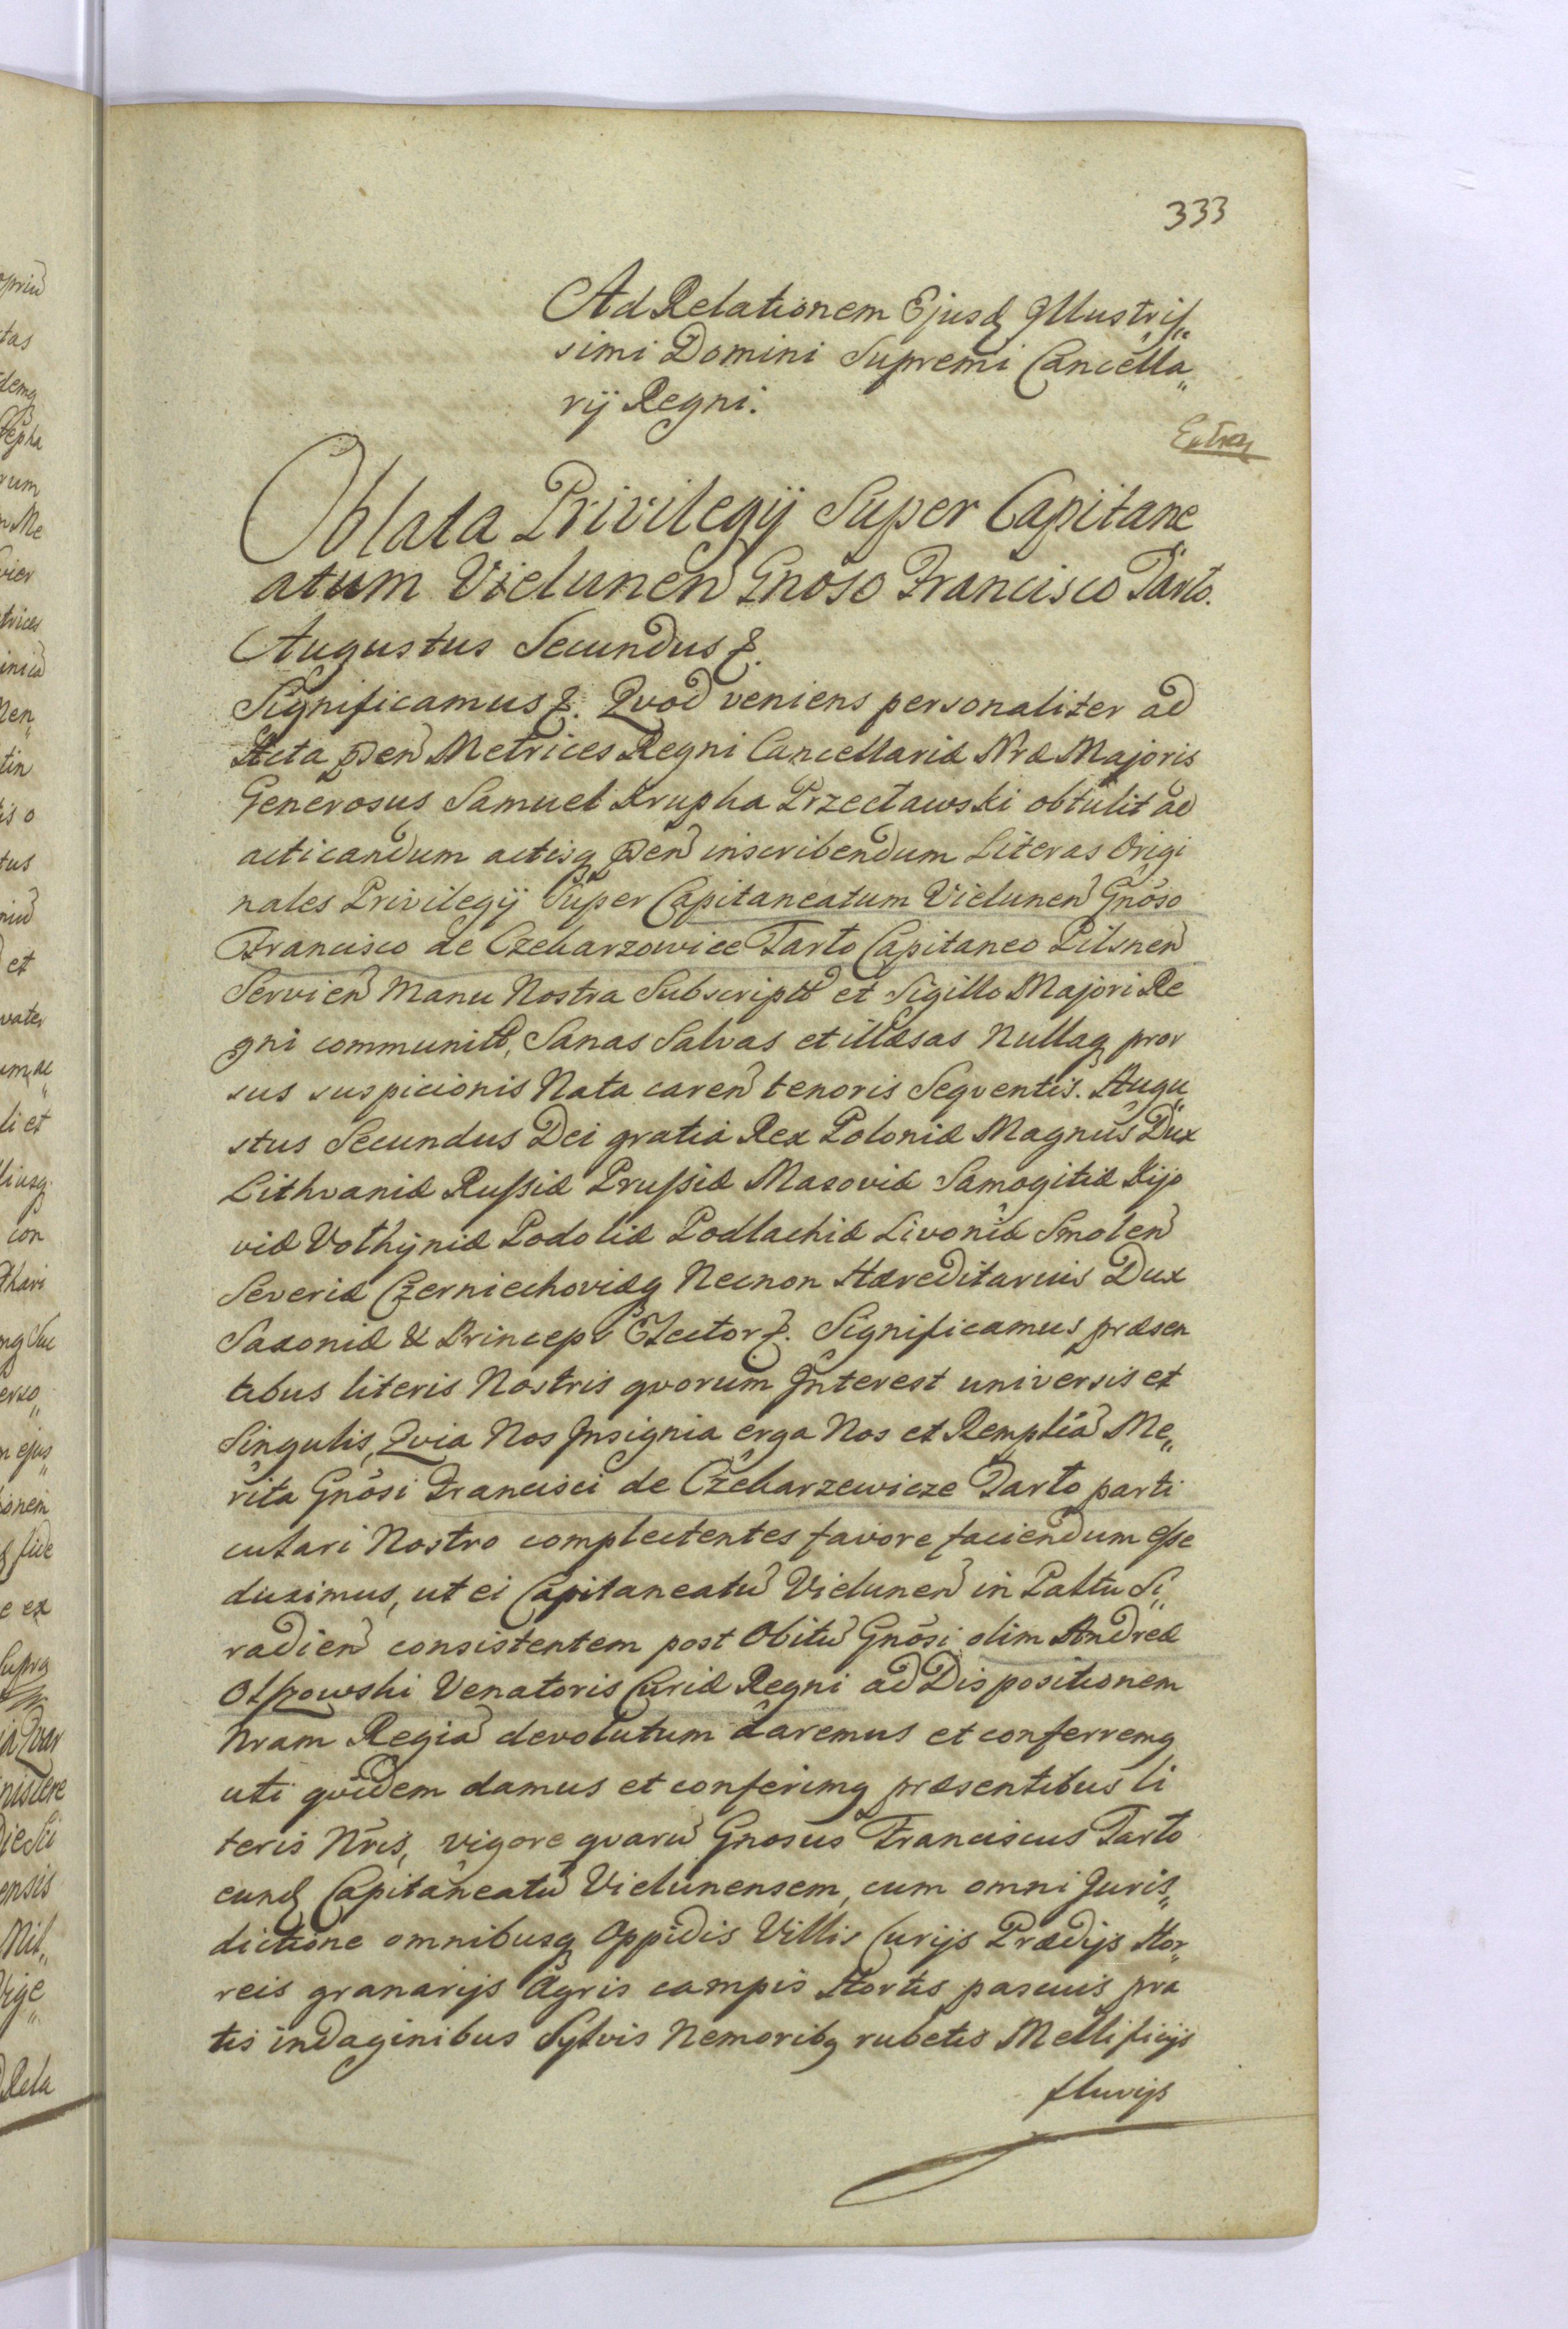 333
Ad Relationem Ejusd Illustris„
simi Domini Supremi Cancella„
rij Regni.
Extrad
Oblata Privilegij Super Capitane
atum Vielunen Gnoso Francisco Tarło.
Augustus Secundus &.
Significamus &. Qvod veniens personaliter ad
Acta pden Metrices Regni Cancellariæ Nræ Majoris
Generosus Samuel Krupka Przecławski obtulit ad
acticandum actisq pden inscribendum Literas Origi
nales Privilegij Super Capitaneatum Vielunen Gnoso
Francisco de Czekarzowice Tarło Capitaneo Pilsnen
Servien Manu Nostra Subscriptas et Sigillo Majori Re
gni communitas, Sanas Salvas et illæsas Nullaq pror
sus suspicionis Nota caren tenoris Seqventis. Augu„
stus Secundus Dei gratia Rex Poloniæ Magnus Dux
Lithvaniæ Russiæ Prussiæ Masoviæ Samogitiæ Kijo
viæ Volhyniæ Podoliæ Podlachiæ Livoniæ Smolen
Severiæ Czerniechoviæq Necnon Hæreditarius Dux
Saxoniæ & Princeps Elector &. Significamus præsen
tibus literis Nostris qvorum Interest universis et
Singulis, Qvia Nos Insignia erga Nos et Remplia Me„
rita Gnosi Francisci de Czekarzewicze Tarło parti
culari Nostro complectentes favore faciendum esse
duximus, ut ei Capitaneatu Vielunen in Palltu Si„
radien consistentem post Obitu Gnosi olim Andreæ
Olszowski Venatoris Curiæ Regni ad Dispositionem
Nram Regia devolutum daremus et conferremq
uti qvidem damus et conferimq præsentibus li
teris Nris, vigore qvaru Gnosus Franciscus Tarło
eund Capitaneatu Vielunensem, cum omni Juris„
dictione omnibusq Oppidis Villis Curijs Prædijs Hor„
reis granarijs Agris campis Hortis pascuis pra
tis indaginibus Sylvis Nemoribq rubetis Mellificijs
fluvijs